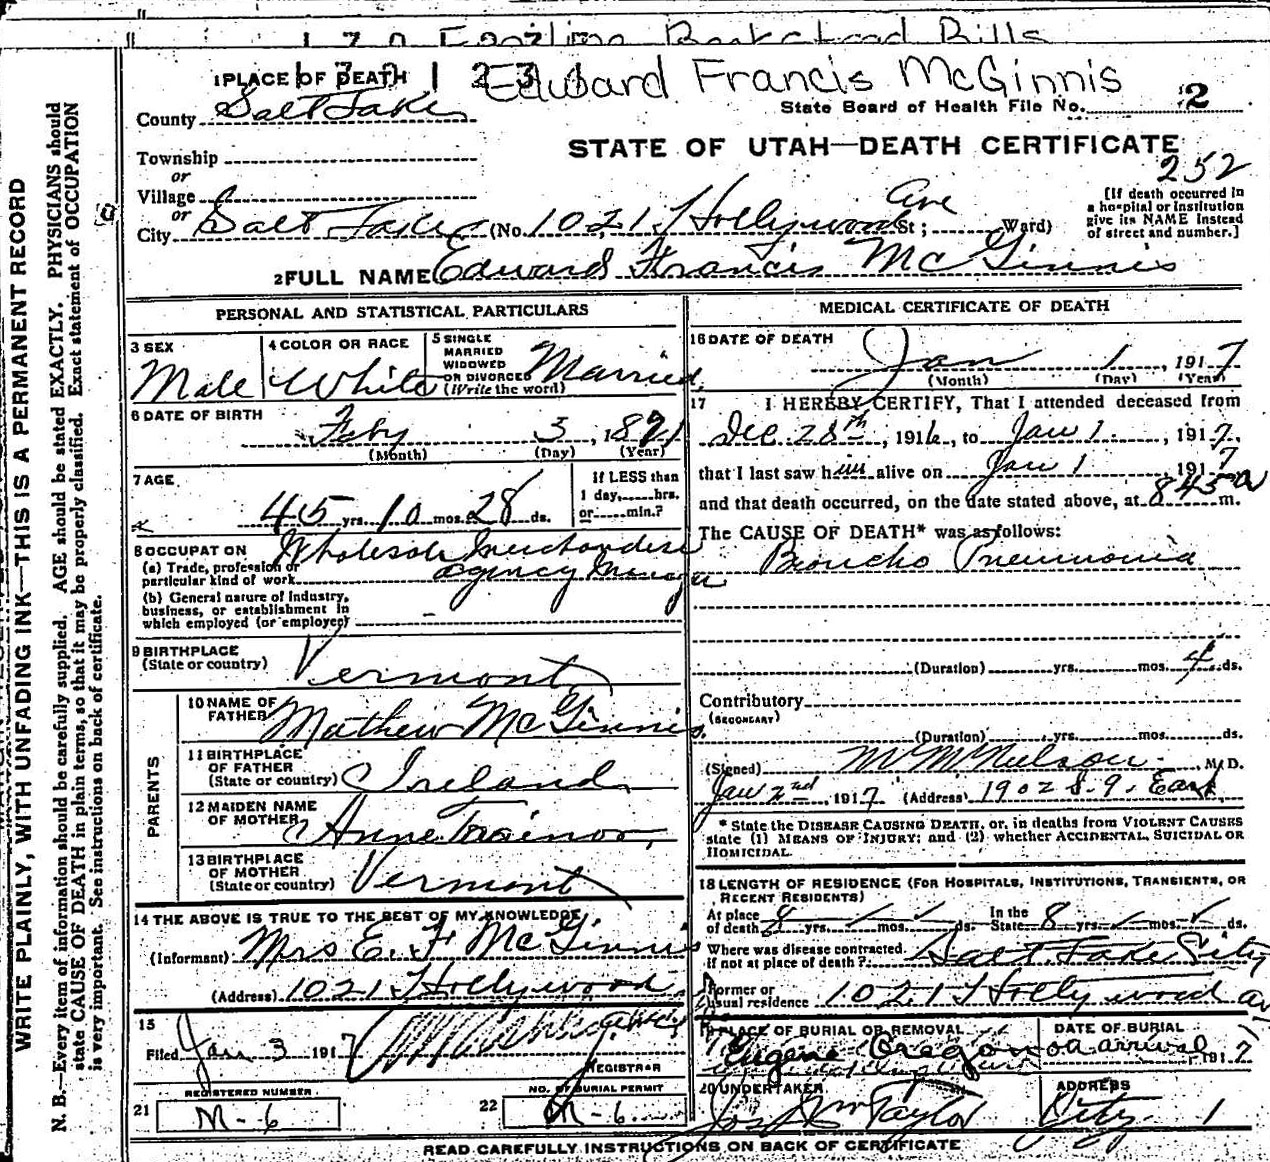 Edward Francis McGinnis
1 PLACE OF DEATH
State Board of Health File No. 2
County Salt Lake
STATE OF UTAH—DEATH CERTIFICATE
252
Township
or
Village
or
City Salt Lake (No. 1021 Hollywood Ave St; Ward)
[If death occurred in
a hospital or institution
give its NAME instead
of street and number.]
2 FULL NAME Edward Francis McGinnis
PERSONAL AND STATISTICAL PARTICULARS
3 SEX
Male
4 COLOR OR RACE
White
5 SINGLE
MARRIED
WIDOWED
OR DIVORCED
(Write the word)
Married
6 DATE OF BIRTH
Feby 3, 1871
(Month) (Day) (Year)
7 AGE
45 yrs. 10 mos. 28 ds.
If LESS than
1 day, hrs.
or min.?
8 OCCUPATION
(a) Trade, profession or
particular kind of work
Wholesale Merchandise
agency Manager
(b) General nature of industry,
business, or establishment in
which employed (or employer) -
9 BIRTHPLACE
(State or country) Vermont
PARENTS
10 NAME OF
FATHER Mathew McGinnis
11 BIRTHPLACE
OF FATHER
(State or country) Ireland
12 MAIDEN NAME
OF MOTHER Anne Trainor
13 BIRTHPLACE
OF MOTHER
(State or country) Vermont
14 THE ABOVE IS TRUE TO THE BEST OF MY KNOWLEDGE
(Informant) Mrs E. F McGinnis
(Address) 1021 Hollywood
15
Filed Jan 3 1917
REGISTRAR
21
REGISTERED NUMBER
M-6
22
NO. OF BURIAL PERMIT
M-6
MEDICAL CERTIFICATE OF DEATH
16 DATE OF DEATH
Jan 1, 1917
(Month) (Day) (Year)
17 I HEREBY CERTIFY, That I attended deceased from
Dec 28th, 1916, to Jan 1, 1917,
that I last saw him alive on Jan 1, 1917
and that death occurred, on the date stated above, at 845 a m.
The CAUSE OF DEATH* was as follows:
Broncho Pneumonia
(Duration) yrs. mos. 4 ds.
Contributory
(SECONDARY)
(Duration) yrs. mos. ds.
(Signed) M McNielson M.D.
Jan 2nd, 1917 (Address) 1902 S. 9. East
* State the DISEASE CAUSING DEATH, or, in deaths from VIOLENT CAUSES
state (1) MEANS OF INJURY; and (2) whether ACCIDENTAL, SUICIDAL OR
HOMICIDAL.
18 LENGTH OF RESIDENCE (FOR HOSPITALS, INSTITUTIONS, TRANSIENTS, OR
RECENT RESIDENTS)
At place
of death 8 yrs. mos. ds.
In the
State 8 yrs. mos. ds.
Where was disease contracted
if not at place of death? Salt Lake City
Former or
usual residence 1021 Hollywood av
19 PLACE OF BURIAL OR REMOVAL
Eugene Oregon
DATE OF BURIAL
on arrival 1917
20 UNDERTAKER
Jos Wm Taylor
ADDRESS
City 1
READ CAREFULLY INSTRUCTIONS ON BACK OF CERTIFICATE
WRITE PLAINLY, WITH UNFADING INK—THIS IS A PERMANENT RECORD
N. B.—Every item of information should be carefully supplied. AGE should be stated EXACTLY. PHYSICIANS should
state CAUSE OF DEATH in plain terms, so that it may be properly classified. Exact statement of OCCUPATION
is very important. See instructions on back of certificate.